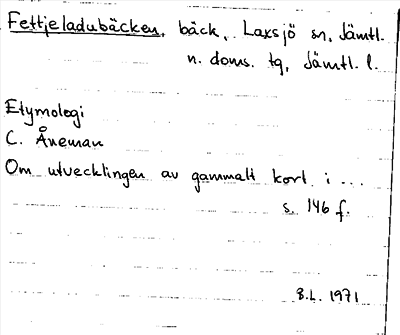 Fettjeladubäcken, bäck, Laxsjö sn, Jämtl.
n. doms. tg, Jämtl. l.
Etymologi
C. Åneman
Om utvecklingen av gammalt kort i ...
s. 146 f.
B.L. 1971